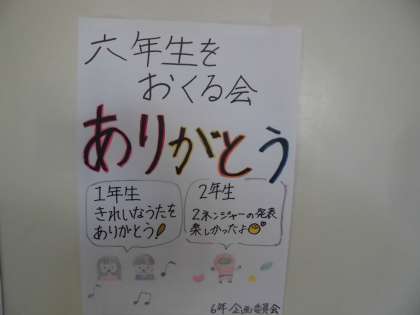 六年生を
おくる会
ありがとう
1年生
きれいなうたを
ありがとう!
2年生
2ネンジャーの発表
楽しかったよ
6年 企画委員会